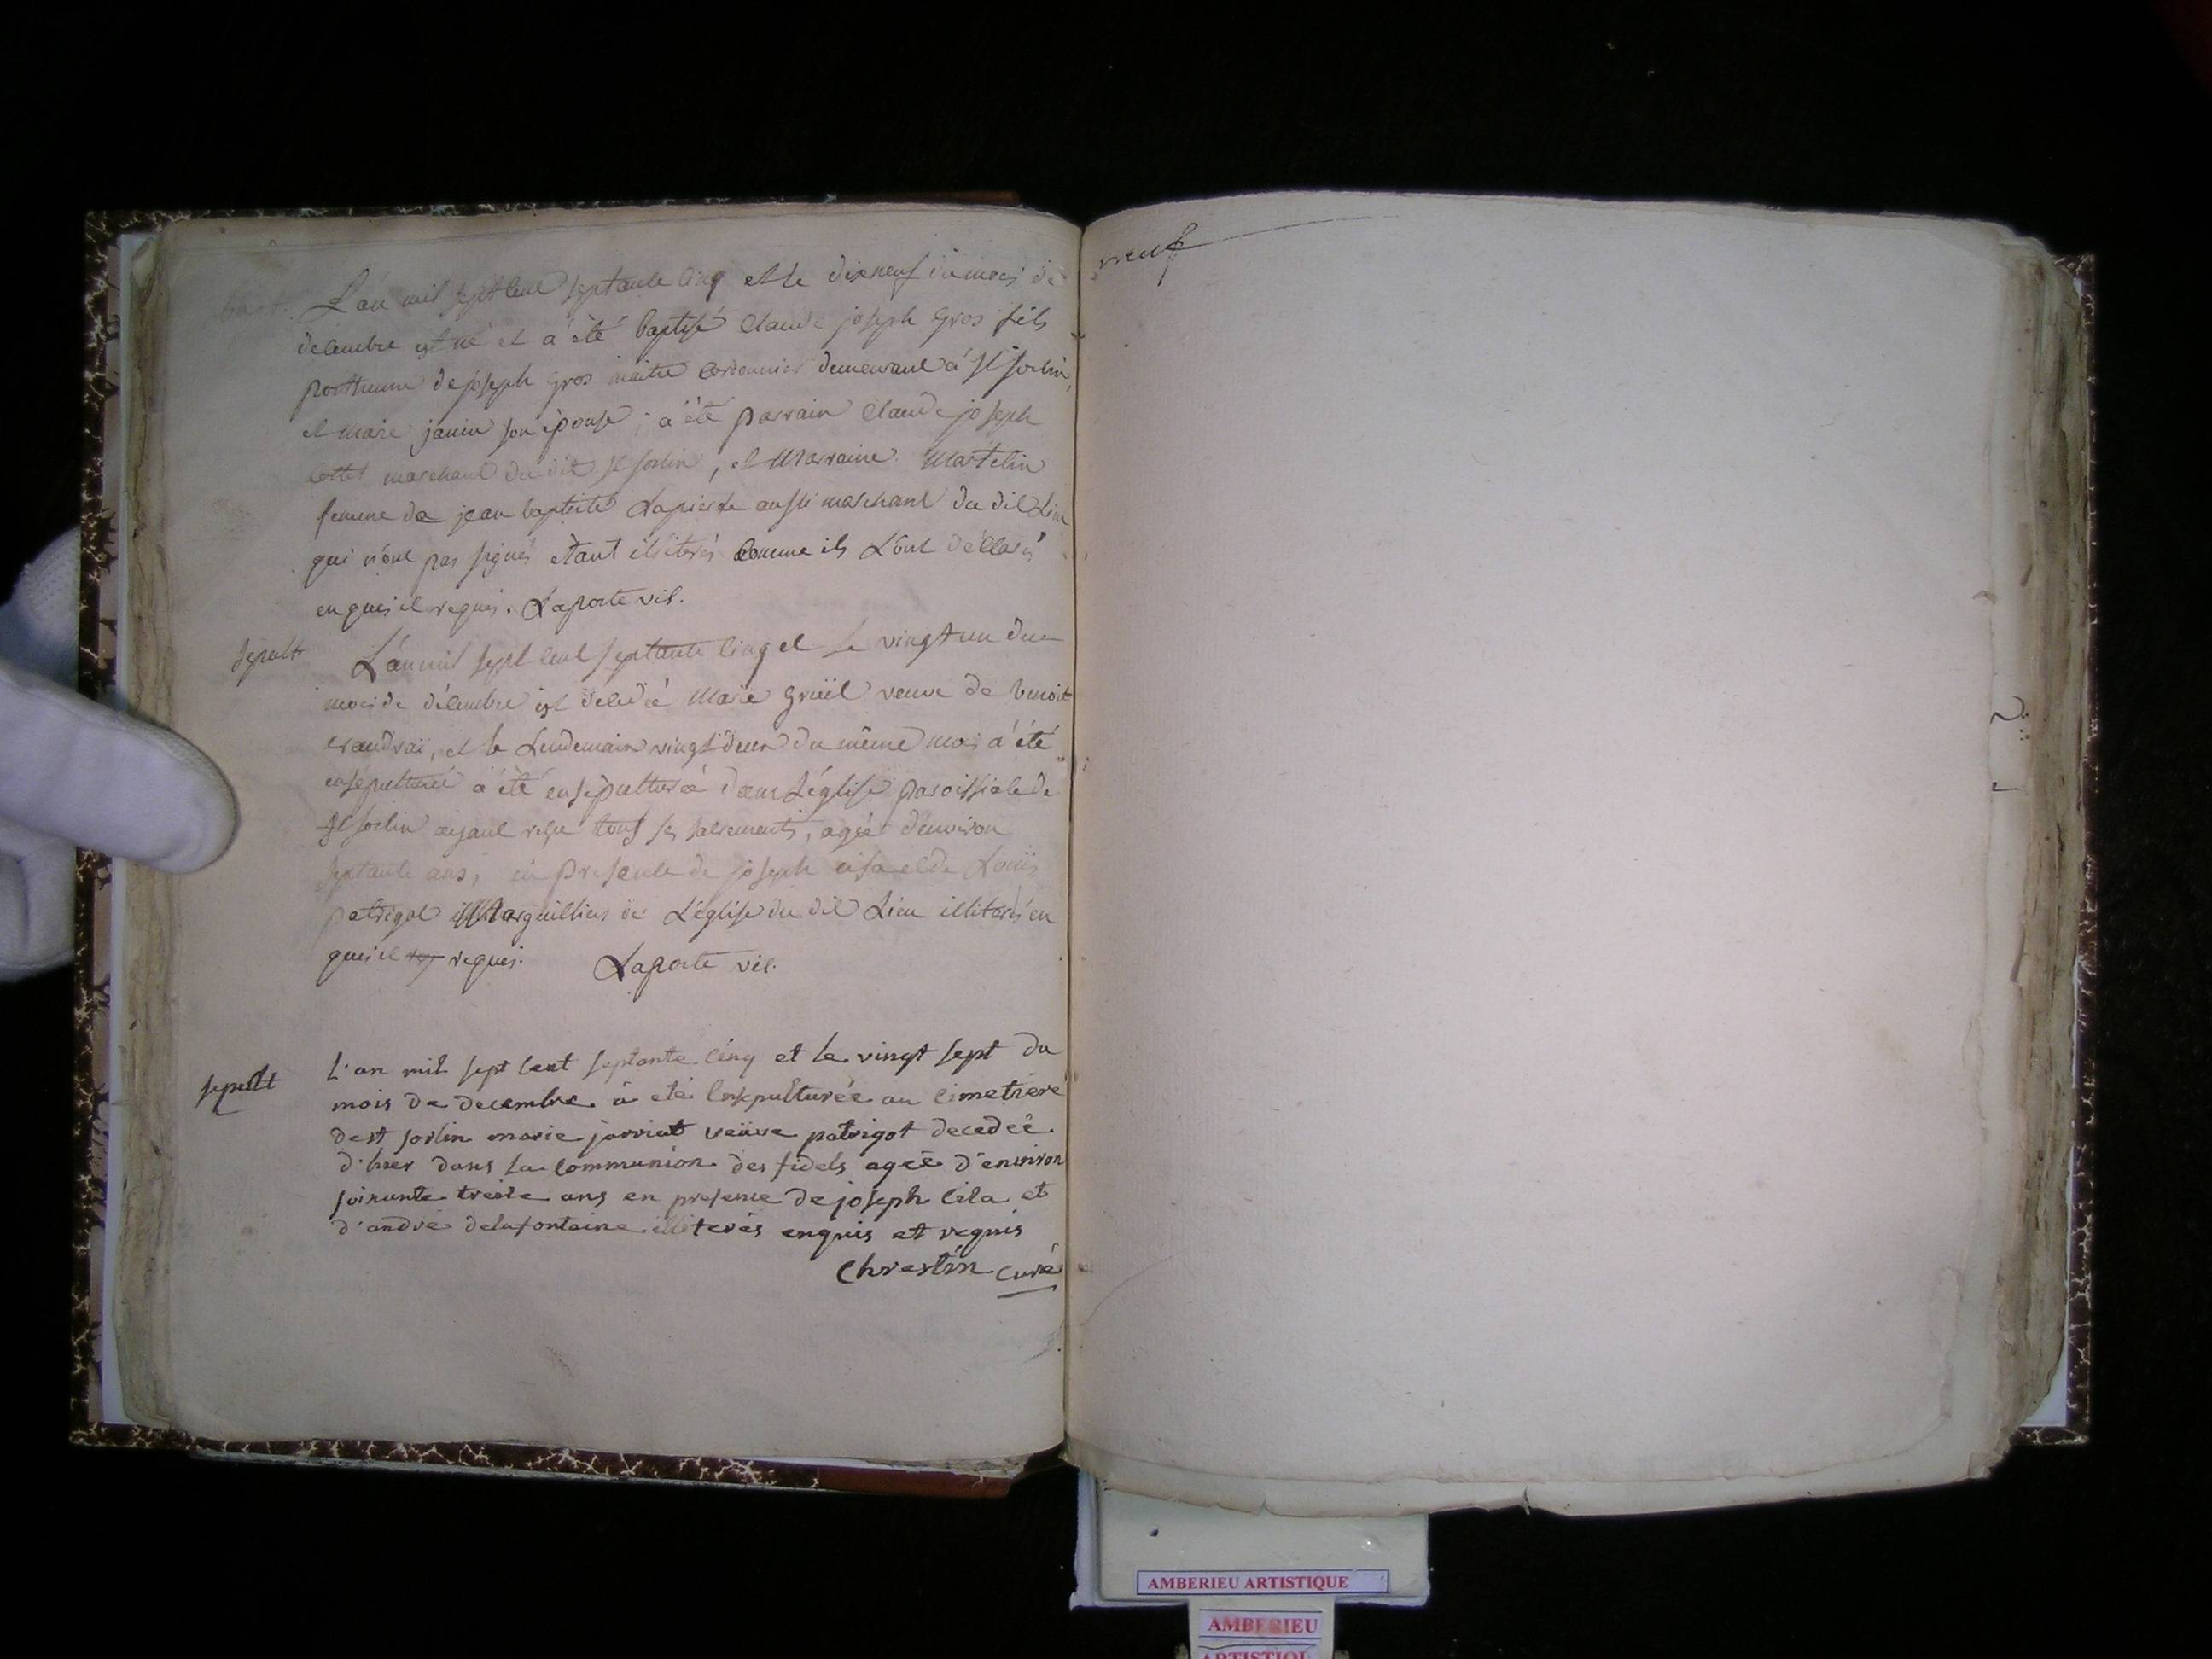 bapt.
L'an mil sept cent septante cinq et le dixneuf du mois de
decembre est né et a été baptisé Claude joseph Gros fils
posthume de joseph Gros maitre Cordonnier demeurant á St Sorlin,
et marie janin son épouse ; a été parrain Claude joseph
cottet marchand du dit St sorlin, et Marraine Martelin
femme de jean baptiste Lapierre aussi marchant du dit Lieu
qui n'ont pas signés étant illiterés comme ils L'ont déclaré
enquis et requis. Laporte vic.
sepult
L'an mil sept cent septante cinq et Le vingt un du
mois de décembre est décedée Marie gruël veuve de benoit
et le Lendemain vingt deux du même mois a été
ensepulturée a été ensépulturée dans L'église paroissiale de
St sorlin ayant reçue tous ses sacrements, agée d'environ
septante ans, en presence de joseph cisa et de Louis
patrigot Marguilliers de L'église du dit Lieu illiterés en
quis et req requis. Laporte vic.
sepult
L'an mil sept cent septante cinq et le vingt sept du
mois de decembre a eté Ensepulturée au cimetiere
de st sorlin marie jarriat veüve patrigot decedeé
d'hier dans la communion des fidels ageé d'environ
soixante treize ans en presence de joseph cila et
d'andré delafontaine illiterés enquis et requis
Chrestin curé
neuf
AMBERIEU ARTISTIQUE
AMBERIEU
ARTISTIQUE